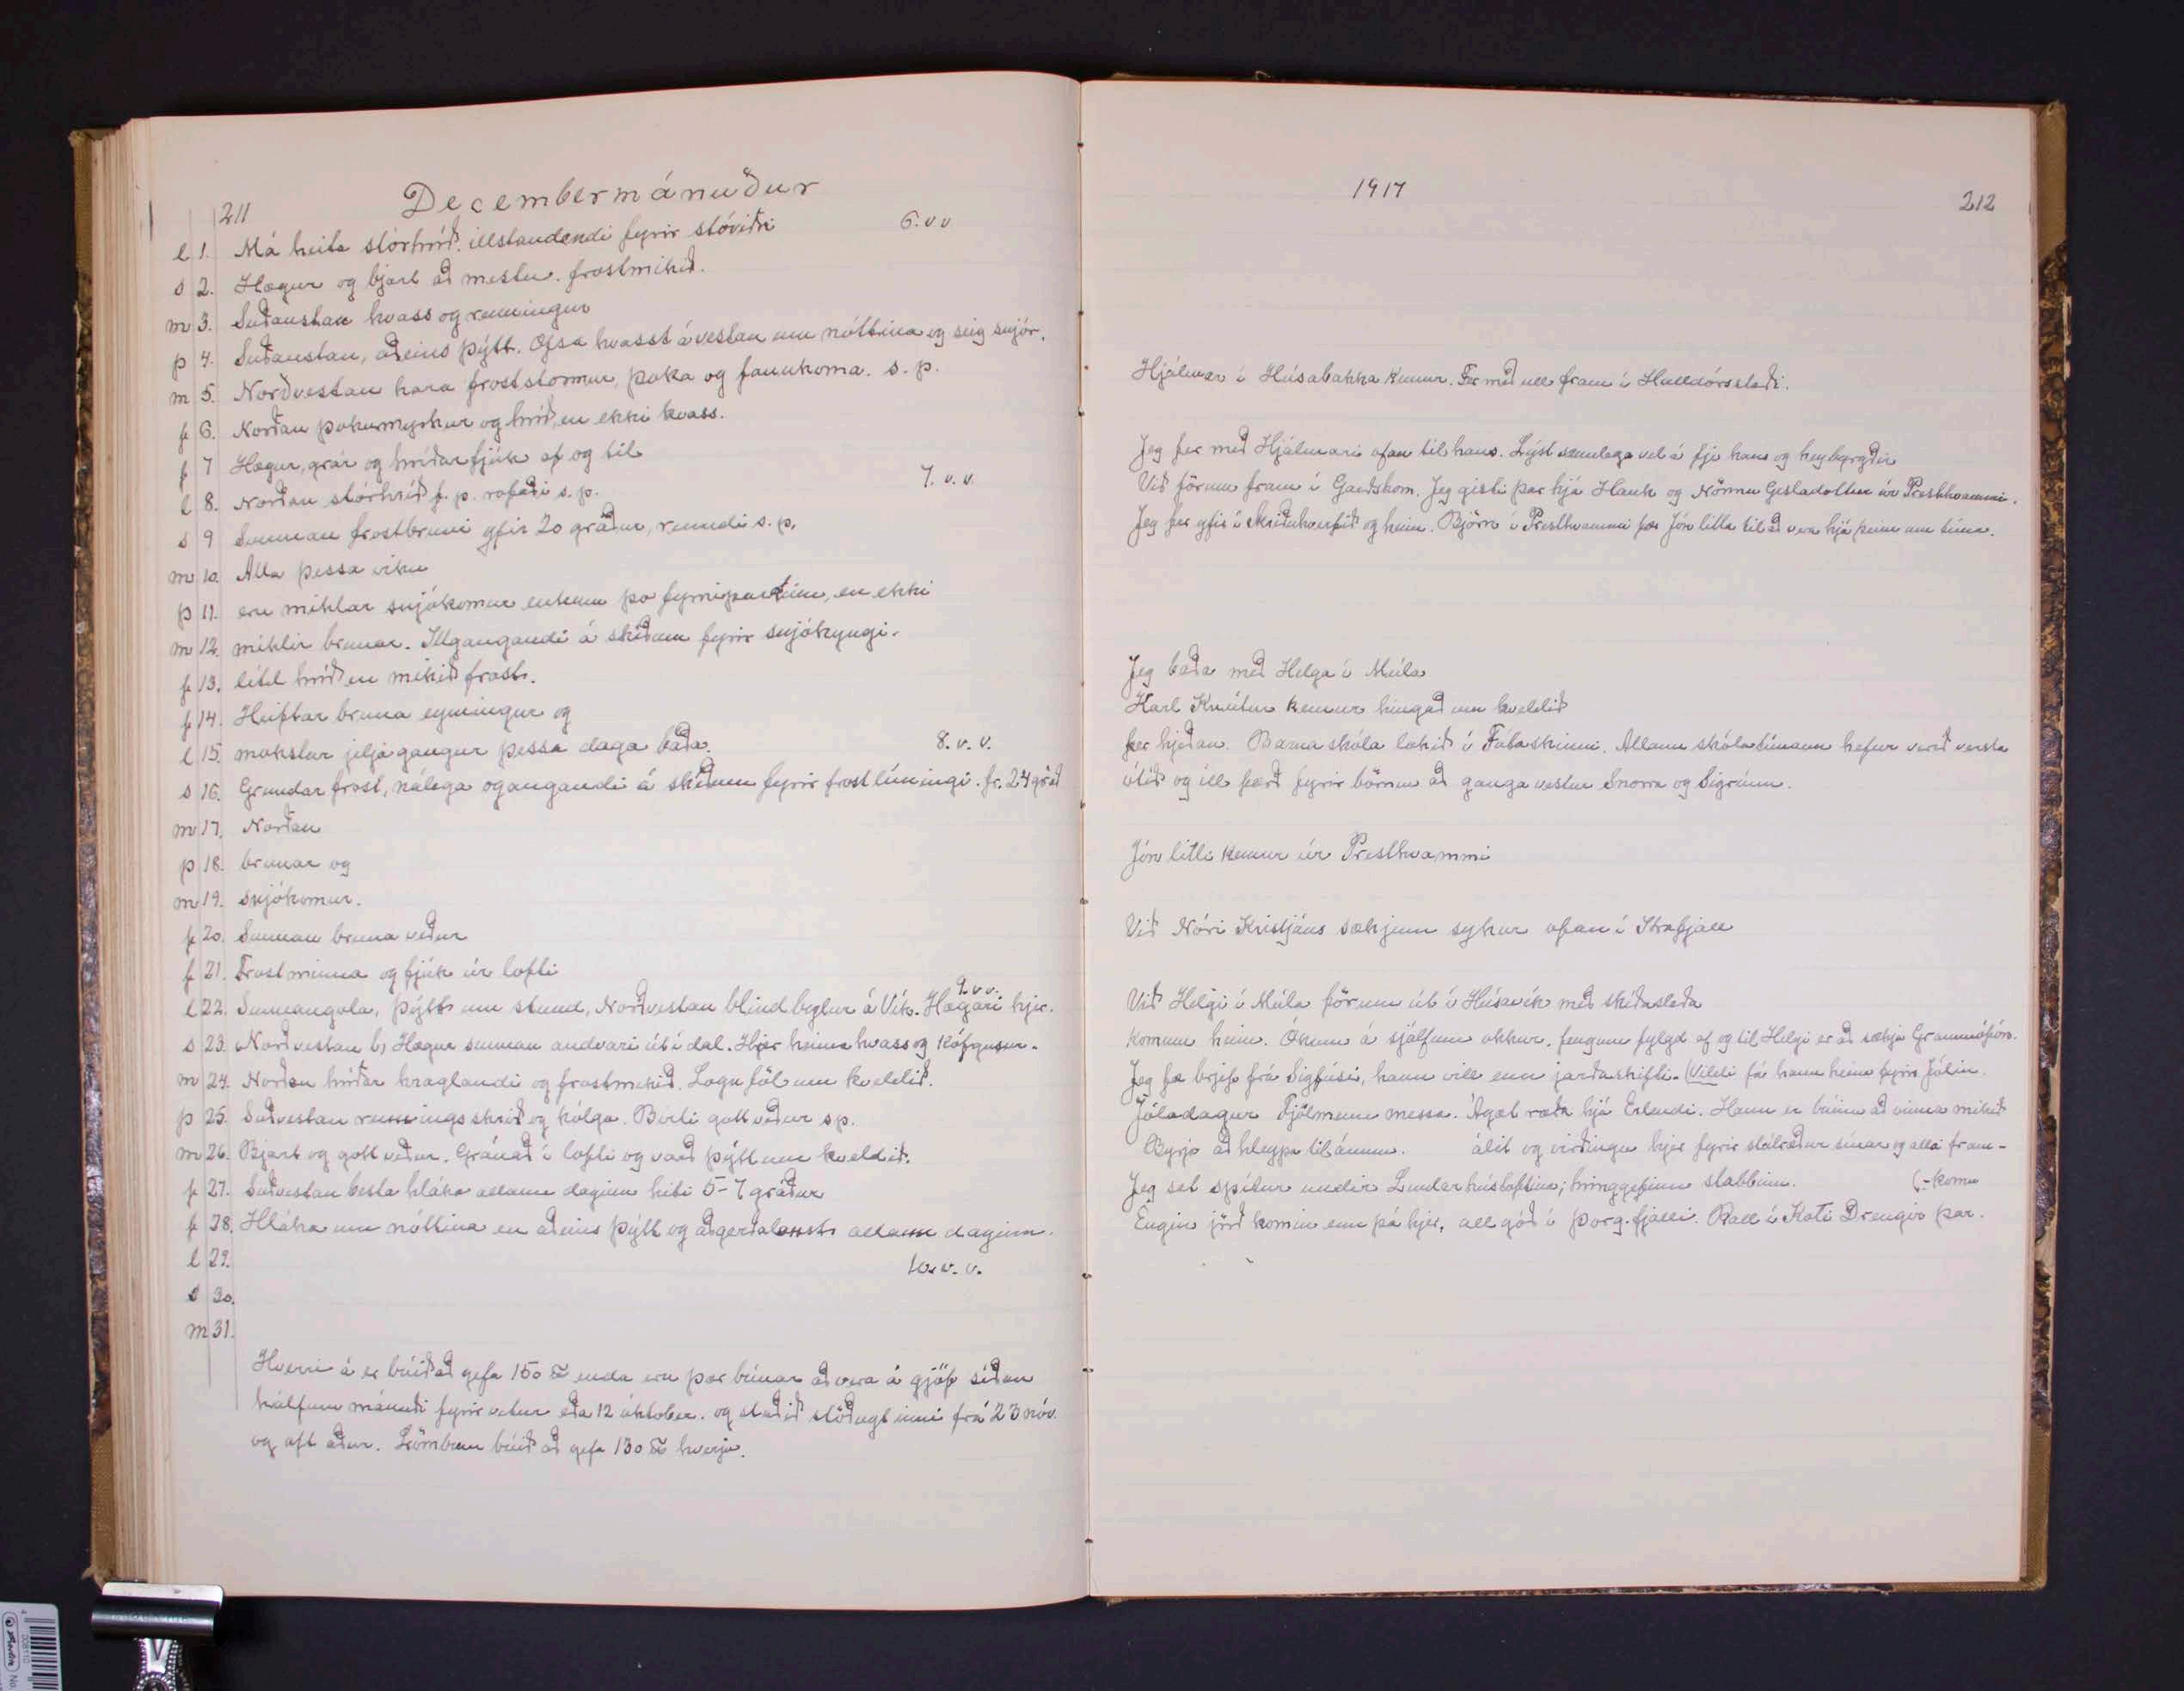 211
Decembermánuður
l 1. Má heita stórhríð. illstandendi fyrir stóviðri 6. v v
s 2. Hægur og bjart að mestu. frostmikið.
m 3. Suðaustan hvass og renningur
þ 4. Suðaustan, aðeins þýtt. Ofsa hvasst á vestan um nóttina og seig snjór.
m 5. Norðvestan hara froststormur, þoka og fannkoma. s. p.
f 6. Norðan þokumyrkur og hríð, en ekki hvass.
f 7 Hægur, grár og hríðarfjúk af og til
l 8. Norðan stórhríð f. p. rofaði s. p. 7. v. v.
s 9 Sunnan frostbruni yfir 20 gráður, renndi s. p.
m 10. Alla þessa viku
þ 11. eru miklar snjókomur einkum þo fyrripartinn, en ekki
m 12. miklir brunar. Illgangandi á skíðum fyrir snjókyngi.
f 13. lítil hríð en mikið frost.
f 14. Heiftar bruna eymingur og
l 15. mokstur jeljagangur þessa daga báða. 8. v. v.
s 16. Grundar frost, nálega ogangandi á skíðum fyrir frostlíningi. fr. 24 gráð
m 17. Norðan
þ 18. brunar og
m 19. snjókomur.
f 20. Sunnan bruna veður
f 21. Frost minna og fjúk úr lofti
9. v v.
l 22. Sunnangola, þýtt um stund, Norðvestan blindbylur á Vík. Hægari hjer.
s 23. Norðvestan b, Hægur sunnan andvari út í dal. Hjer heima hvass og kófgusur.
m 24. Norðan hríðar hraglandi og frostmikið. Logn föl um kveldið.
þ 25. Suðvestan renningsskrið og kólga. Birti gott veður s p.
m 26. Bjart og gott veður. Gránað í lofti og varð þýtt um kveldið.
f 27. Suðvestan besta hláka allann daginn hiti 5-7 gráður
f 28. Hláka um nóttina en aðeins þýtt og aðgerðalaust allann daginn.
l 29. 10. v. v.
s 30.
m 31.
Hverri á er búið að gefa 150 ℔ enda eru þær búnar að vera á gjöf síðan
hálfum mánuði fyrir vetur eða 12 október. og staðið stöðugt inni frá 23 nóv.
og oft áður. Lömbum búið að gefa 130 ℔ hverju.
1917
212
Hjálmar í Húsabakka kemur. Fer með ull fram í Halldórsstaði.
Jeg fer með Hjálmari ofan til hans. Lýst sæmilega vel á fje hans og heybyrgðir
Við förum fram í Garðskom. Jeg gisti þar hjá Hauk og Nönnu Gísladóttur úr Presthvammi.
Jeg fer yfir í Skriðuhverfið og heim. Björn í Presthvammi fær Jón litla til að vera hjá þeim um tíma.
Jeg baða með Helga í Múla
Karl Knútur kemur hingað um kveldið
fer hjeðan. Barna skóla lokið í Fótaskinni. Allann skólatímann hefur verið versta
ótíð og ill færð fyrir börnin að ganga vestur Snorra og Sigrúnu.
Jón litli kemur úr Presthvammi
Við Nóri Kristjáns sækjum sykur ofan í Ytrafjall
Við Helgi í Múla förum út í Húsavík með skíðasleða
komum heim. Ókum á sjálfum okkur. fengum fylgd af og til Helgi er að sækja Grammófón.
Jeg fæ brjef frá Sigfúsi, hann vill enn jarðaskifti. (Vildi fá hann heim fyrir Jólin.
Jóladagur Fjölmenn messa. Ágæt ræða hjá Erlendi. Hann er búinn að vinna mikið
Byrja að hleypa til ánum. álit og virðingu hjer fyrir stólræður sínar og alla fram-
Jeg set spítur undir Lundarhúsloftin; hringgefinn stabbinn. (-komu
Engin jörð komin enn þá hjer, all góð í Þorg.fjalli. Ball í Koti Drengir þar.